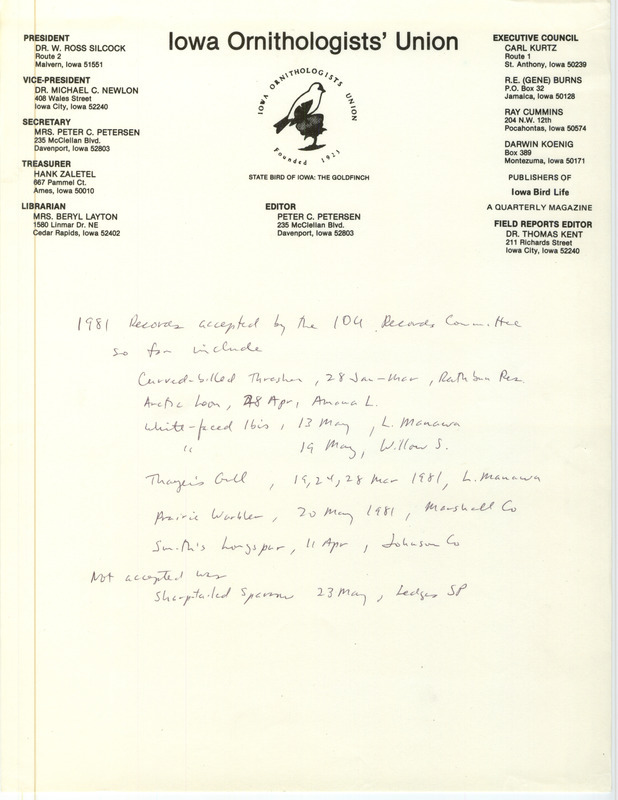 Iowa Ornithologists' Union
PRESIDENT
DR. W. ROSS SILCOCK
Route 2
Malvern, Iowa 51551
VICE-PRESIDENT
DR. MICHAEL C. NEWLON
408 Wales Street
Iowa City, Iowa 52240
SECRETARY
MRS. PETER C. PETERSEN
235 McClellan Blvd.
Davenport, Iowa 52803
TREASURER
HANK ZALETEL
667 Pammel Ct.
Ames, Iowa 50010
LIBRARIAN
MRS. BERYL LAYTON
1580 Linmar Dr. NE
Cedar Rapids, Iowa 52402
IOWA ORNITHOLOGISTS UNION
Founded 1923
STATE BIRD OF IOWA: THE GOLDFINCH
EDITOR
PETER C. PETERSEN
235 McClellan Blvd.
Davenport, Iowa 52803
EXECUTIVE COUNCIL
CARL KURTZ
Route 1
St. Anthony, Iowa 50239
R.E. (GENE) BURNS
P.O. Box 32
Jamaica, Iowa 50128
RAY CUMMINS
204 N.W. 12th
Pocahontas, Iowa 50574
DARWIN KOENIG
Box 389
Montezuma, Iowa 50171
PUBLISHERS OF
Iowa Bird Life
A QUARTERLY MAGAZINE
FIELD REPORTS EDITOR
DR. THOMAS KENT
211 Richards Street
Iowa City, Iowa 52240
1981 Records accepted by the IOU Records Committee
so far include
Curved-billed Thrasher, 28 Jan-Mar, Rathbun Res.
Arctic Loon, 28 Apr, Amana L.
White-faced Ibis, 13 May, L. Manawa
" 19 May, Willow S.
Thayer's Gull, 19, 24, 28 Mar 1981, L. Manawa
Prairie Warbler, 20 May 1981, Marshall Co
Smith's Longspur, 11 Apr, Johnson Co
Not accepted was
Sharp-tailed Sparrow 23 May, Ledges SP